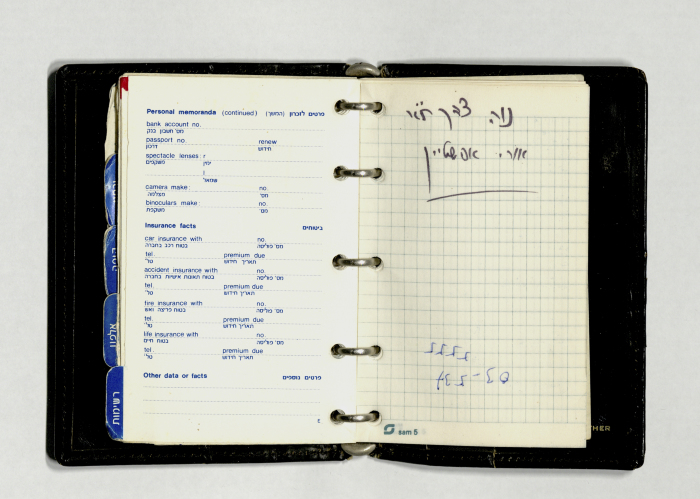 Personal memoranda (continued) פרטים לזכרון (המשך)
bank account no.
מס' חשבון בנק
passport no. renew
דרכון חידוש
spectacle lenses: r
משקפים ימין
l
שמאל
camera make: no.
מצלמה מס'
binoculars make: no.
משקפת מס'
Insurance facts ביטוחים
car insurance with no.
בטוח רכב בחברה מס' פוליסה
tel. premium due
טל' תאריך חידוש
accident insurance with no.
בטוח תאונות אישיות בחברה מס' פוליסה
tel. premium due
טל' תאריך חידוש
fire insurance with no.
בטוח פריצה ואש מס' פוליסה
tel. premium due
טל' תאריך חידוש
life insurance with no.
בטוח חיים מס' פוליסה
tel. premium due
טל' תאריך חידוש
Other data or facts פרטים נוספים
נוה צדק ת"א
אורי
sam 5
THER